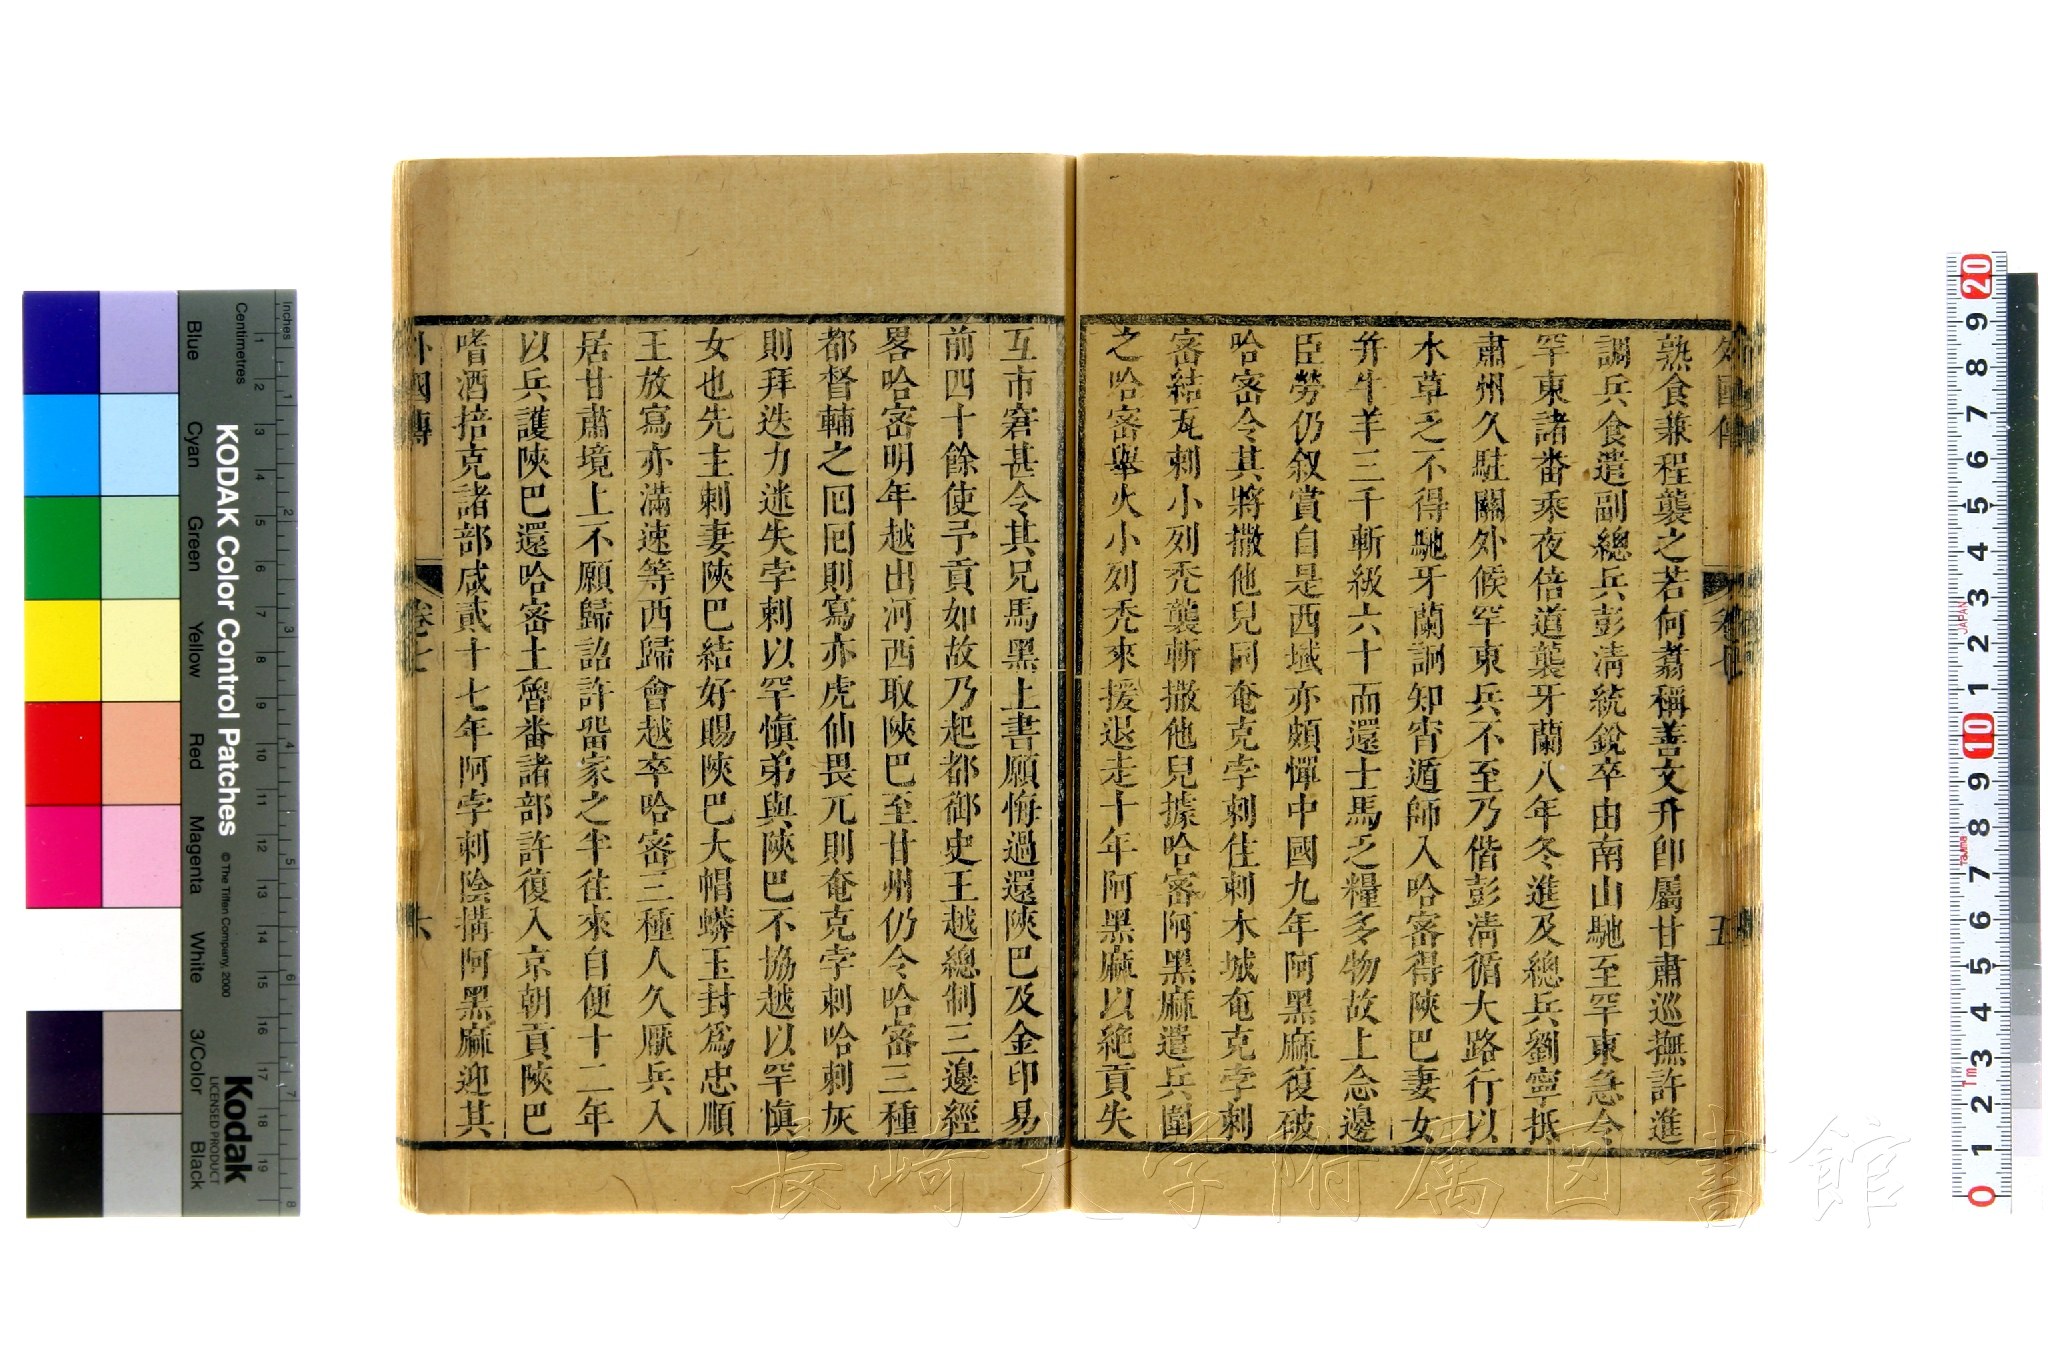 外國傳 卷七 五
熟食兼程襲之若何翥稱善文升卽屬甘肅巡撫許進
調兵食遣副總兵彭淸統銳卒由南山馳至罕東急令
罕東諸畨乘夜倍道襲牙蘭八年冬進及總兵劉寧抵
肅州久駐關外候罕東兵不至乃偕彭淸循大路行以
水草乏不得馳牙蘭詗知宵遁師入哈密得陝巴妻女
幷牛羊三千斬級六十而還士馬乏糧多物故上念邊
臣勞仍叙賞自是西域亦頗憚中國九年阿黑麻復破
哈密令其將撒他兒同奄克孛剌住剌木城奄克孛剌
密結瓦剌小列禿襲斬撒他兒據哈密阿黑麻遣兵圍
之哈密舉火小列禿來援退走十年阿黑麻以絶貢失
互市窘甚令其兄馬黑上書願悔過還陝巴及金印易
前四十餘使予貢如故乃起都御史王越總制三邊經
畧哈密明年越出河西取陝巴至甘州仍令哈密三種
都督輔之囘囘則寫亦虎仙畏兀則奄克孛剌哈剌灰
則拜迭力迷失孛剌以罕愼弟與陝巴不協越以罕愼
女也先主剌妻陝巴結好賜陝巴大帽蟒玉封爲忠順
王放寫亦滿速等西歸會越卒哈密三種人久厭兵入
居甘肅境上不願歸詔許畱家之半往來自便十二年
以兵護陝巴還哈密土魯畨諸部許復入京朝貢陝巴
嗜酒掊克諸部咸貳十七年阿孛剌陰搆阿黑麻迎其
外國傳 卷七 六
長崎大学附属図書館
KODAK Color Control Patches
© The Tiffen Company, 2000
Kodak
LICENSED PRODUCT
Inches
Centimetres
Blue
Cyan
Green
Yellow
Red
Magenta
White
3/Color
Black
JAPAN